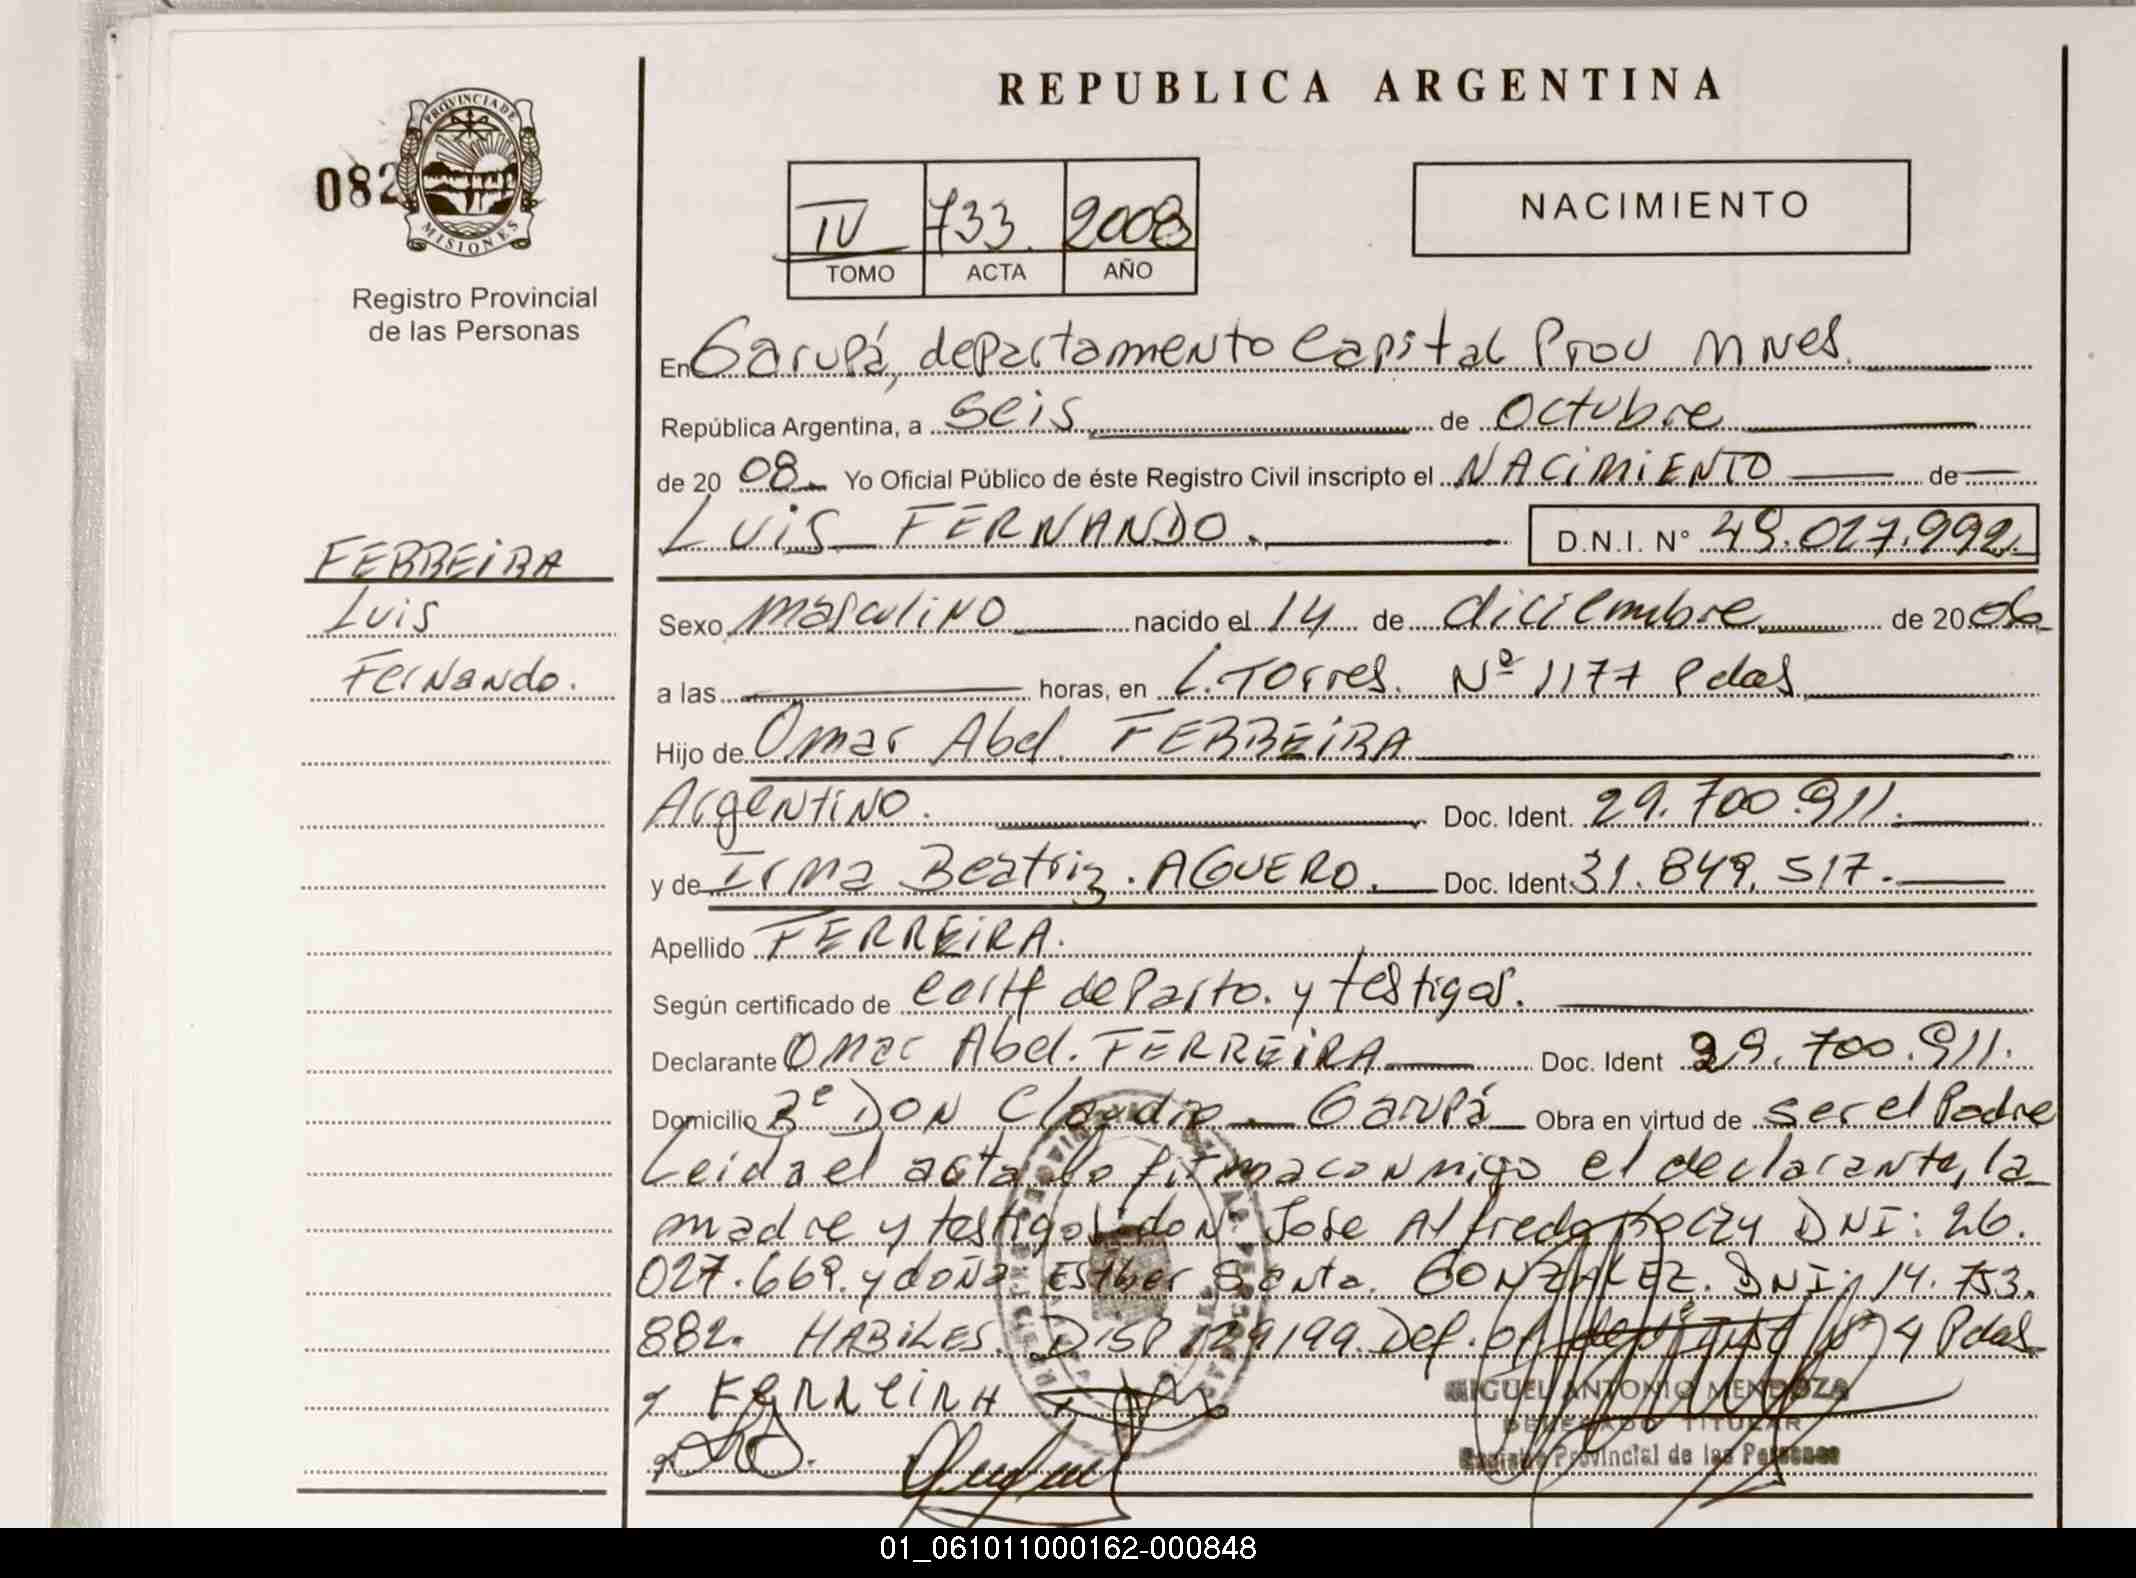 REPUBLICA ARGENTINA
PROVINCIA DE
MISIONES
082
Registro Provincial
de las Personas
IV 733 2008
TOMO ACTA AÑO
NACIMIENTO
En Garupá, departamento Capital Prov Mnes.
República Argentina, a seis de Octubre
de 2008. Yo Oficial Público de éste Registro Civil inscripto el NACIMIENTO de
LUIS FERNANDO. D.N.I. N° 49.027.992.
FERREIRA
Luis
Fernando.
Sexo masculino nacido el 14 de diciembre de 2006
a las horas, en L. Torres. Nº 1177 Pdas
Hijo de Omar Abel FERREIRA
Argentino. Doc. Ident. 29.700.911.
y de Irma Beatriz. AGUERO. Doc. Ident. 31.849.517.
Apellido FERREIRA.
Según certificado de certf de Parto. y testigos.
Declarante Omar Abel. FERREIRA Doc. Ident 29.700.911.
Domicilio Bº Don Claudio Garupá Obra en virtud de ser el Padre
Leida el acta la firma conmigo el declarante, la
madre y testigos: don Jose Alfredo DNI: 26.
027.669. y doña Esther Santa. GONZALEZ. DNI: 14.753.
882. HABILES. DISP 129/99. Def. of de Nº 4 Pdas
FERREIRA
MIGUEL ANTONIO MENDOZA
DELEGADO TITULAR
Registro Provincial de las Personas
01_061011000162-000848